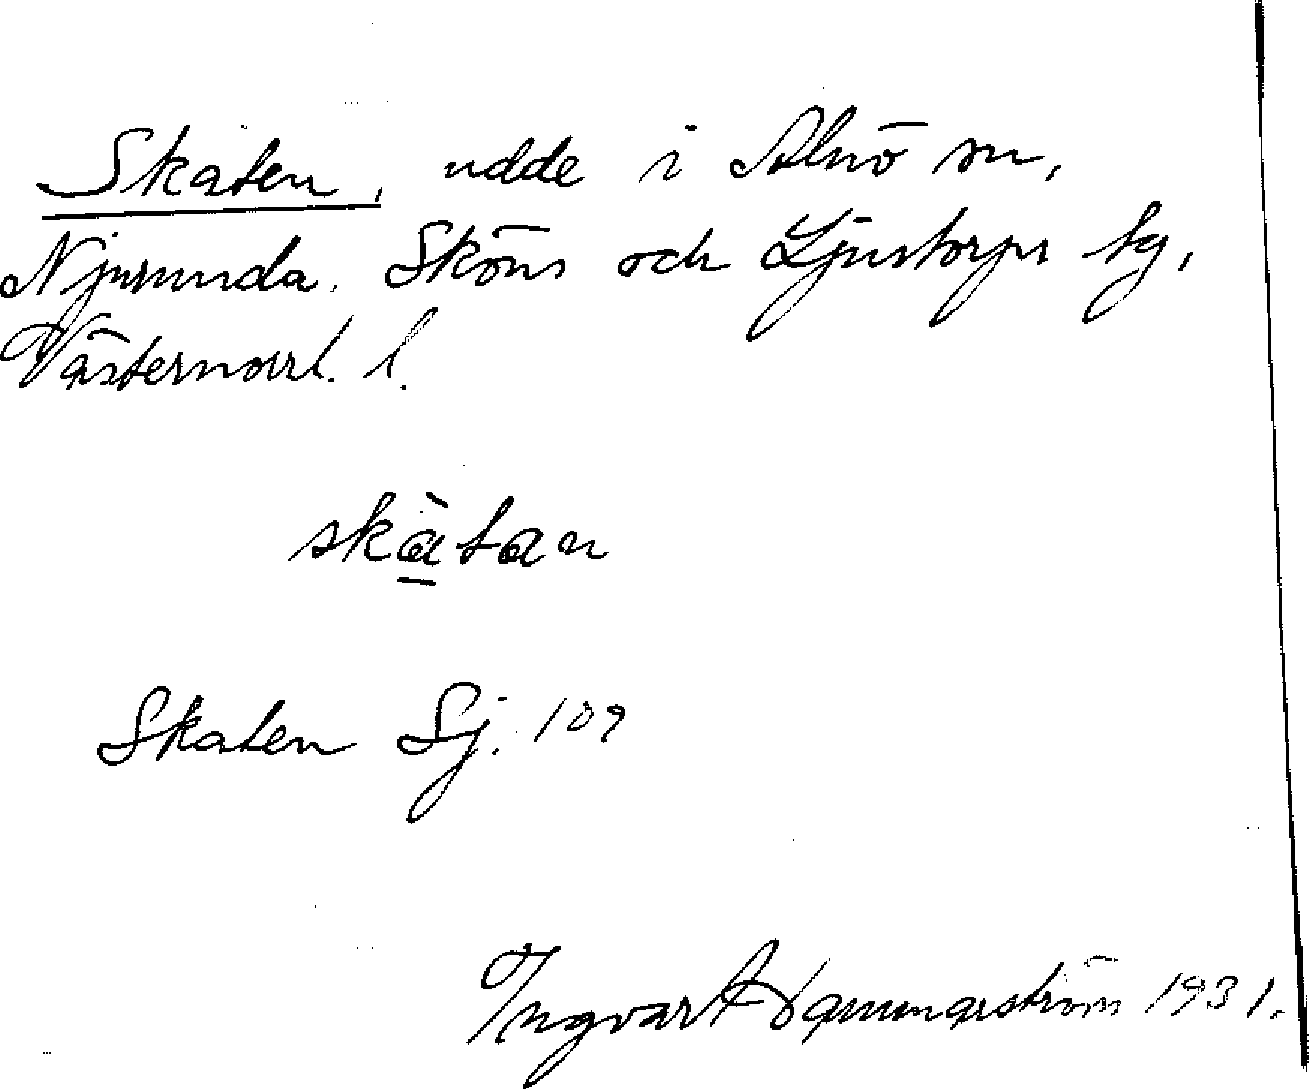 Skaten, udde i Alnö sn,
Njurunda, Sköns och Ljustorps tg,
Västernorrl. l.
skàtan
Skaten Sj. 109
Ingvar Hammarström 1931.